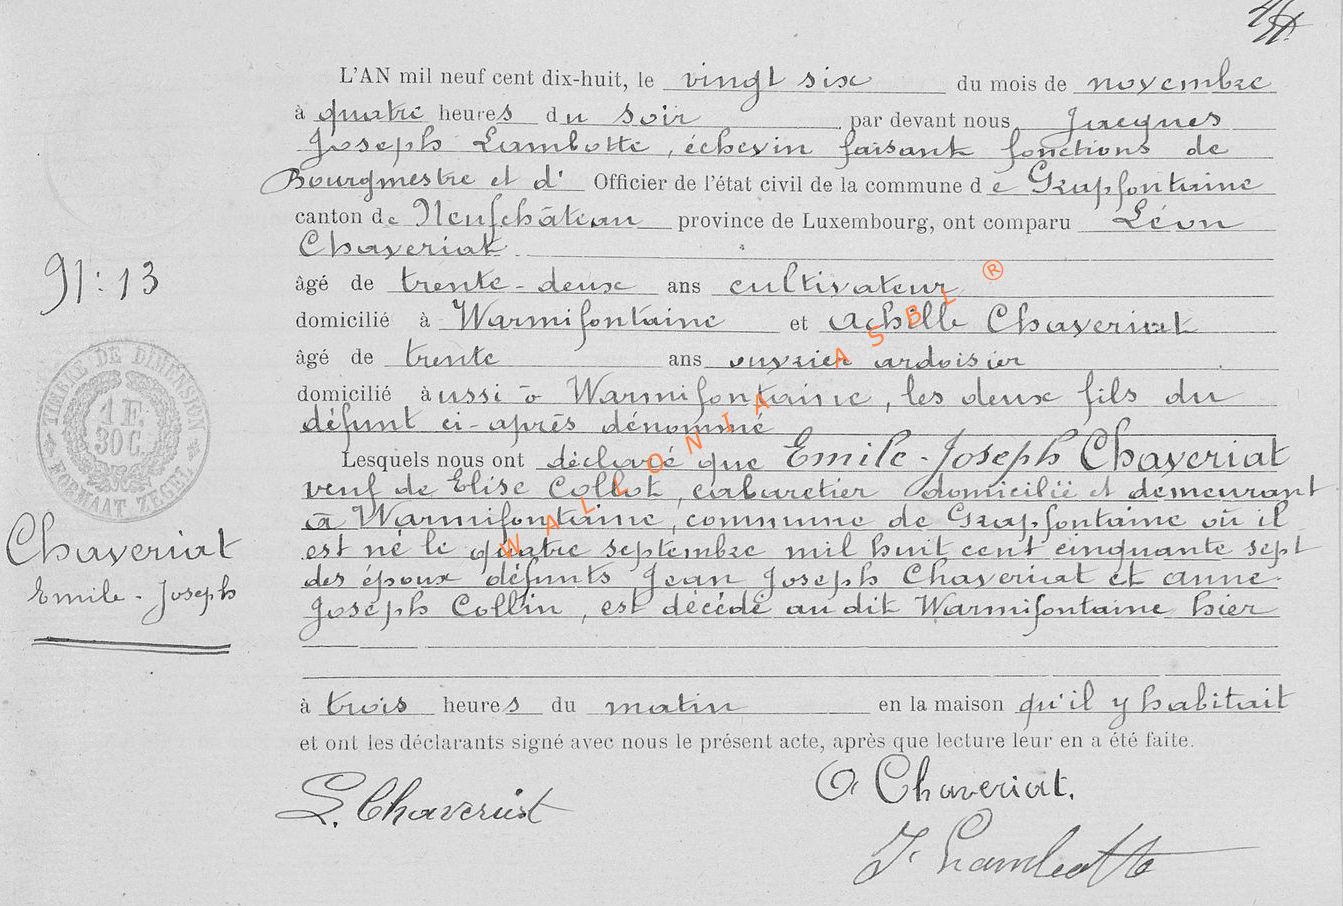 L'AN mil neuf cent dix-huit, le vingt six du mois de novembre
à quatre heures du soir par devant nous Jacques
Joseph Lambotte, échevin faisant fonctions de
Bourgmestre et d' Officier de l'état civil de la commune de Grapfontaine
canton de Neufchâteau province de Luxembourg, ont comparu Léon
Chaveriat
91:13
âgé de trente-deux ans cultivateur
domicilié à Warmifontaine et Achille Chaveriat
âgé de trente ans ouvrier ardoisier
domicilié aussi à Warmifontaine, les deux fils du
défunt ci-après dénommé
TIMBRE DE DIMENSION
1 F.
30 C.
FORMAAT ZEGEL
WALLONIA ASBL ®
Lesquels nous ont déclaré que Emile-Joseph Chaveriat
veuf de Elise Collot, cabaretier domicilié et demeurant
à Warmifontaine, commune de Grapfontaine où il
est né le quatre septembre mil huit cent cinquante sept
des époux défunts Jean Joseph Chaveriat et Anne-
Joseph Collin, est décédé au dit Warmifontaine hier
Chaveriat
Emile-Joseph
à trois heures du matin en la maison qu'il y habitait
et ont les déclarants signé avec nous le présent acte, après que lecture leur en a été faite.
L. Chaveriat
A Chaveriat.
J. Lambotte